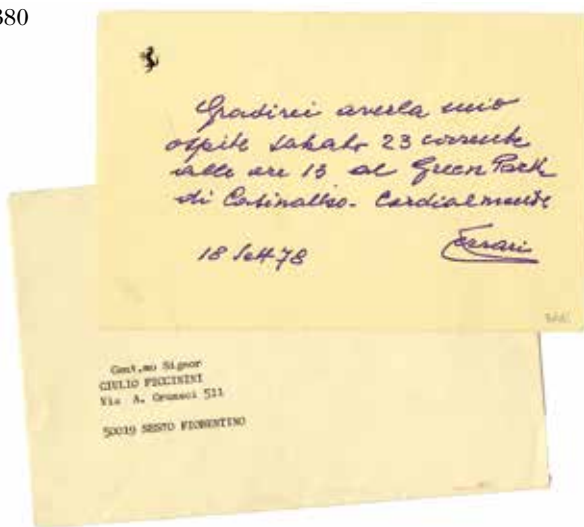 380
Gradirei averla mio
ospite sabato 23 corrente
alle ore 13 al Green Park
di Casinalbo. Cordialmente
18 Sett 78
Ferrari
Gent.mo Signor
GIULIO PICCININI
Via A. Gramsci 511
50019 SESTO FIORENTINO